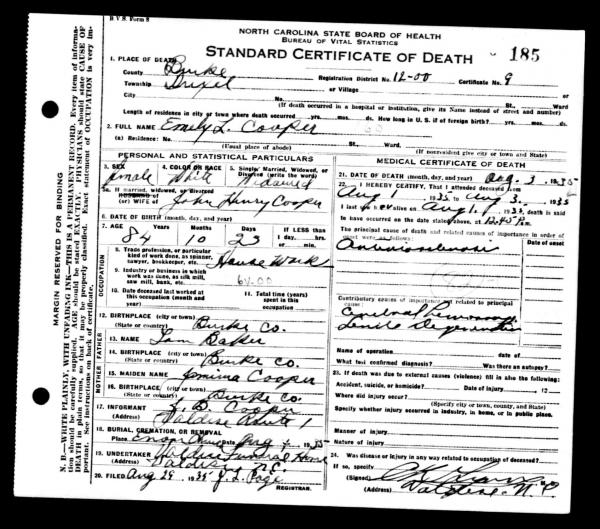 B V S. Form 8
NORTH CAROLINA STATE BOARD OF HEALTH
BUREAU OF VITAL STATISTICS
STANDARD CERTIFICATE OF DEATH 185
1. PLACE OF DEATH
County Burke Registration District No. 12-00 Certificate No. 9
Township Drexel or Village
City No. St., Ward
(If death occurred in a hospital or institution, give its Name instead of street and number)
Length of residence in city or town where death occurred yrs. mos. ds. How long in U. S. if of foreign birth? yrs. mos. ds.
2. FULL NAME Emily L. Cooper
(a) Residence: No. St., Ward
(Usual place of abode) (If nonresident give city or town and State)
PERSONAL AND STATISTICAL PARTICULARS
3. SEX 4. COLOR OR RACE 5. Single, Married, Widowed, or Divorced (write the word)
Female White Widowed
5a. If married, widowed, or divorced
HUSBAND of
(or) WIFE of John Henry Cooper
6. DATE OF BIRTH (month, day, and year)
7. AGE Years Months Days If LESS than
84 10 23
8. Trade, profession, or particular kind of work done, as spinner, sawyer, bookkeeper, etc. House Work
9. Industry or business in which work was done, as silk mill, saw mill, bank, etc.
10. Date deceased last worked at this occupation (month and year) 11. Total time (years) spent in this occupation
OCCUPATION
12. BIRTHPLACE (city or town) Burke Co.
(State or country)
13. NAME Sam Baker
14. BIRTHPLACE (city or town) Burke Co.
(State or country)
FATHER
15. MAIDEN NAME Cooper
16. BIRTHPLACE (city or town) Burke Co.
(State or country)
MOTHER
17. INFORMANT J. B. Cooper
(Address) Valdese Route 1
18. BURIAL, CREMATION, OR REMOVAL
Place Date Aug 1935
19. UNDERTAKER Funeral Home
(Address) Valdese N.C.
20. FILED Aug 29 1935 J. L. Page
REGISTRAR.
MEDICAL CERTIFICATE OF DEATH
21. DATE OF DEATH (month, day, and year) Aug. 3, 1935
22. I HEREBY CERTIFY, That I attended deceased from
Aug 1935 to Aug 3, 1935
I last saw alive on Aug 1, 1935, death is said
to have occurred on the date stated above, at 12:45 P m.
The principal cause of death and related causes of importance in order of onset were as follows: Date of onset
Contributory causes of importance not related to principal cause:
Cerebral Hemorrhage
Senile Degeneration
Name of operation date of
What test confirmed diagnosis? Was there an autopsy?
23. If death was due to external causes (violence) fill in also the following:
Accident, suicide, or homicide? Date of injury 19
Where did injury occur?
(Specify city or town, county, and State)
Specify whether injury occurred in industry, in home, or in public place.
Manner of injury
Nature of injury
24. Was disease or injury in any way related to occupation of deceased?
If so, specify
(Signed)
(Address) Valdese, N. C.
MARGIN RESERVED FOR BINDING
N. B.—WRITE PLAINLY, WITH UNFADING INK—THIS IS A PERMANENT RECORD. Every item of information should be carefully supplied. AGE should be stated EXACTLY. PHYSICIANS should state CAUSE OF DEATH in plain terms, so that it may be properly classified. Exact statement of OCCUPATION is very important. See instructions on back of certificate.